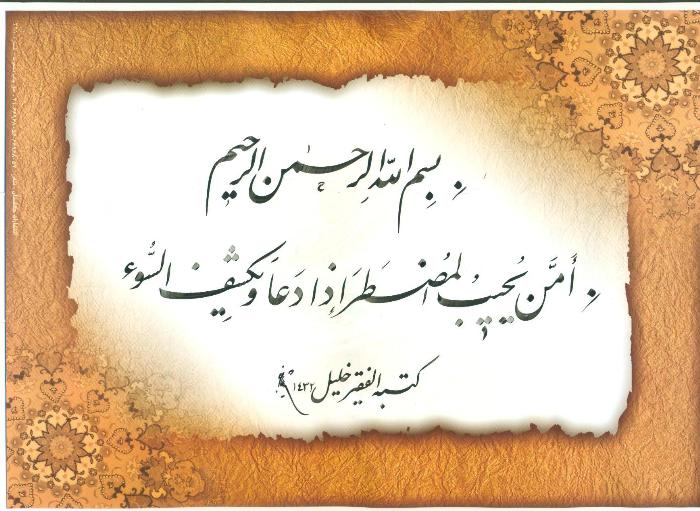 بسم الله الرحمن الرحيم
أَمَّن يُجيبُ المُضطَرَ إذا دَعَا وَيَكشِفُ السُّوء
كتبه الفقير خليل ١٤٣٢